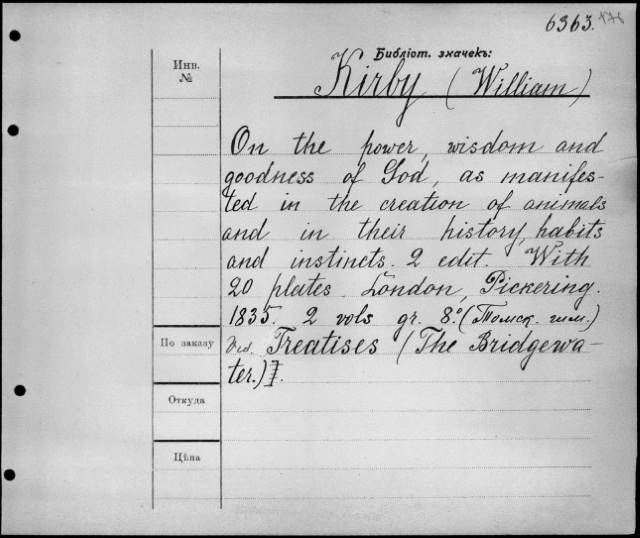 6363. 178
Библіот. значекъ:
Инв.
№
Kirby (William)
On the power, wisdom and
goodness of God, as manifes-
ted in the creation of animals
and in their history, habits
and instincts. 2 edit. With
20 plates. London, Pickering.
1835. 2 vols gr. 8º. (Томск. гим.)
По заказу
Treatises (The Bridgewa-
ter.)].
Откуда
Цѣна